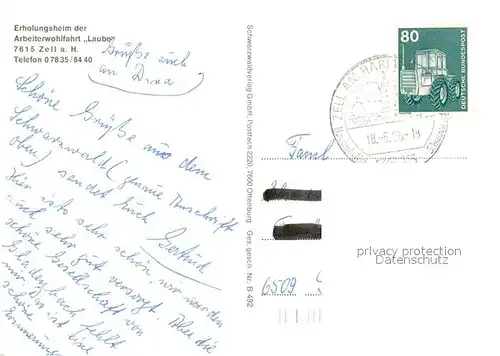 Erholungsheim der
Arbeiterwohlfahrt „Laubo"
7615 Zell a. H.
Telefon 0 78 35 / 84 40
Grüße auch
an
Schöne Grüße aus dem
Schwarzwald (genaue Anschrift
oben) sendet Euch
Gertrud
Hier ists sehr schön, wir werden
auch sehr gut versorgt. Aber die
schöne Gesellschaft von
Gladenbach fehlt
mir. Das ist eine
schöne
Erinnerung
Schwarzwaldverlag GmbH, Postfach 2220, 7600 Offenburg Ges. gesch. Nr. B 492
80
DEUTSCHE BUNDESPOST
ZELL AM HARMERSBACH
Famil
6509
privacy protection
Datenschutz